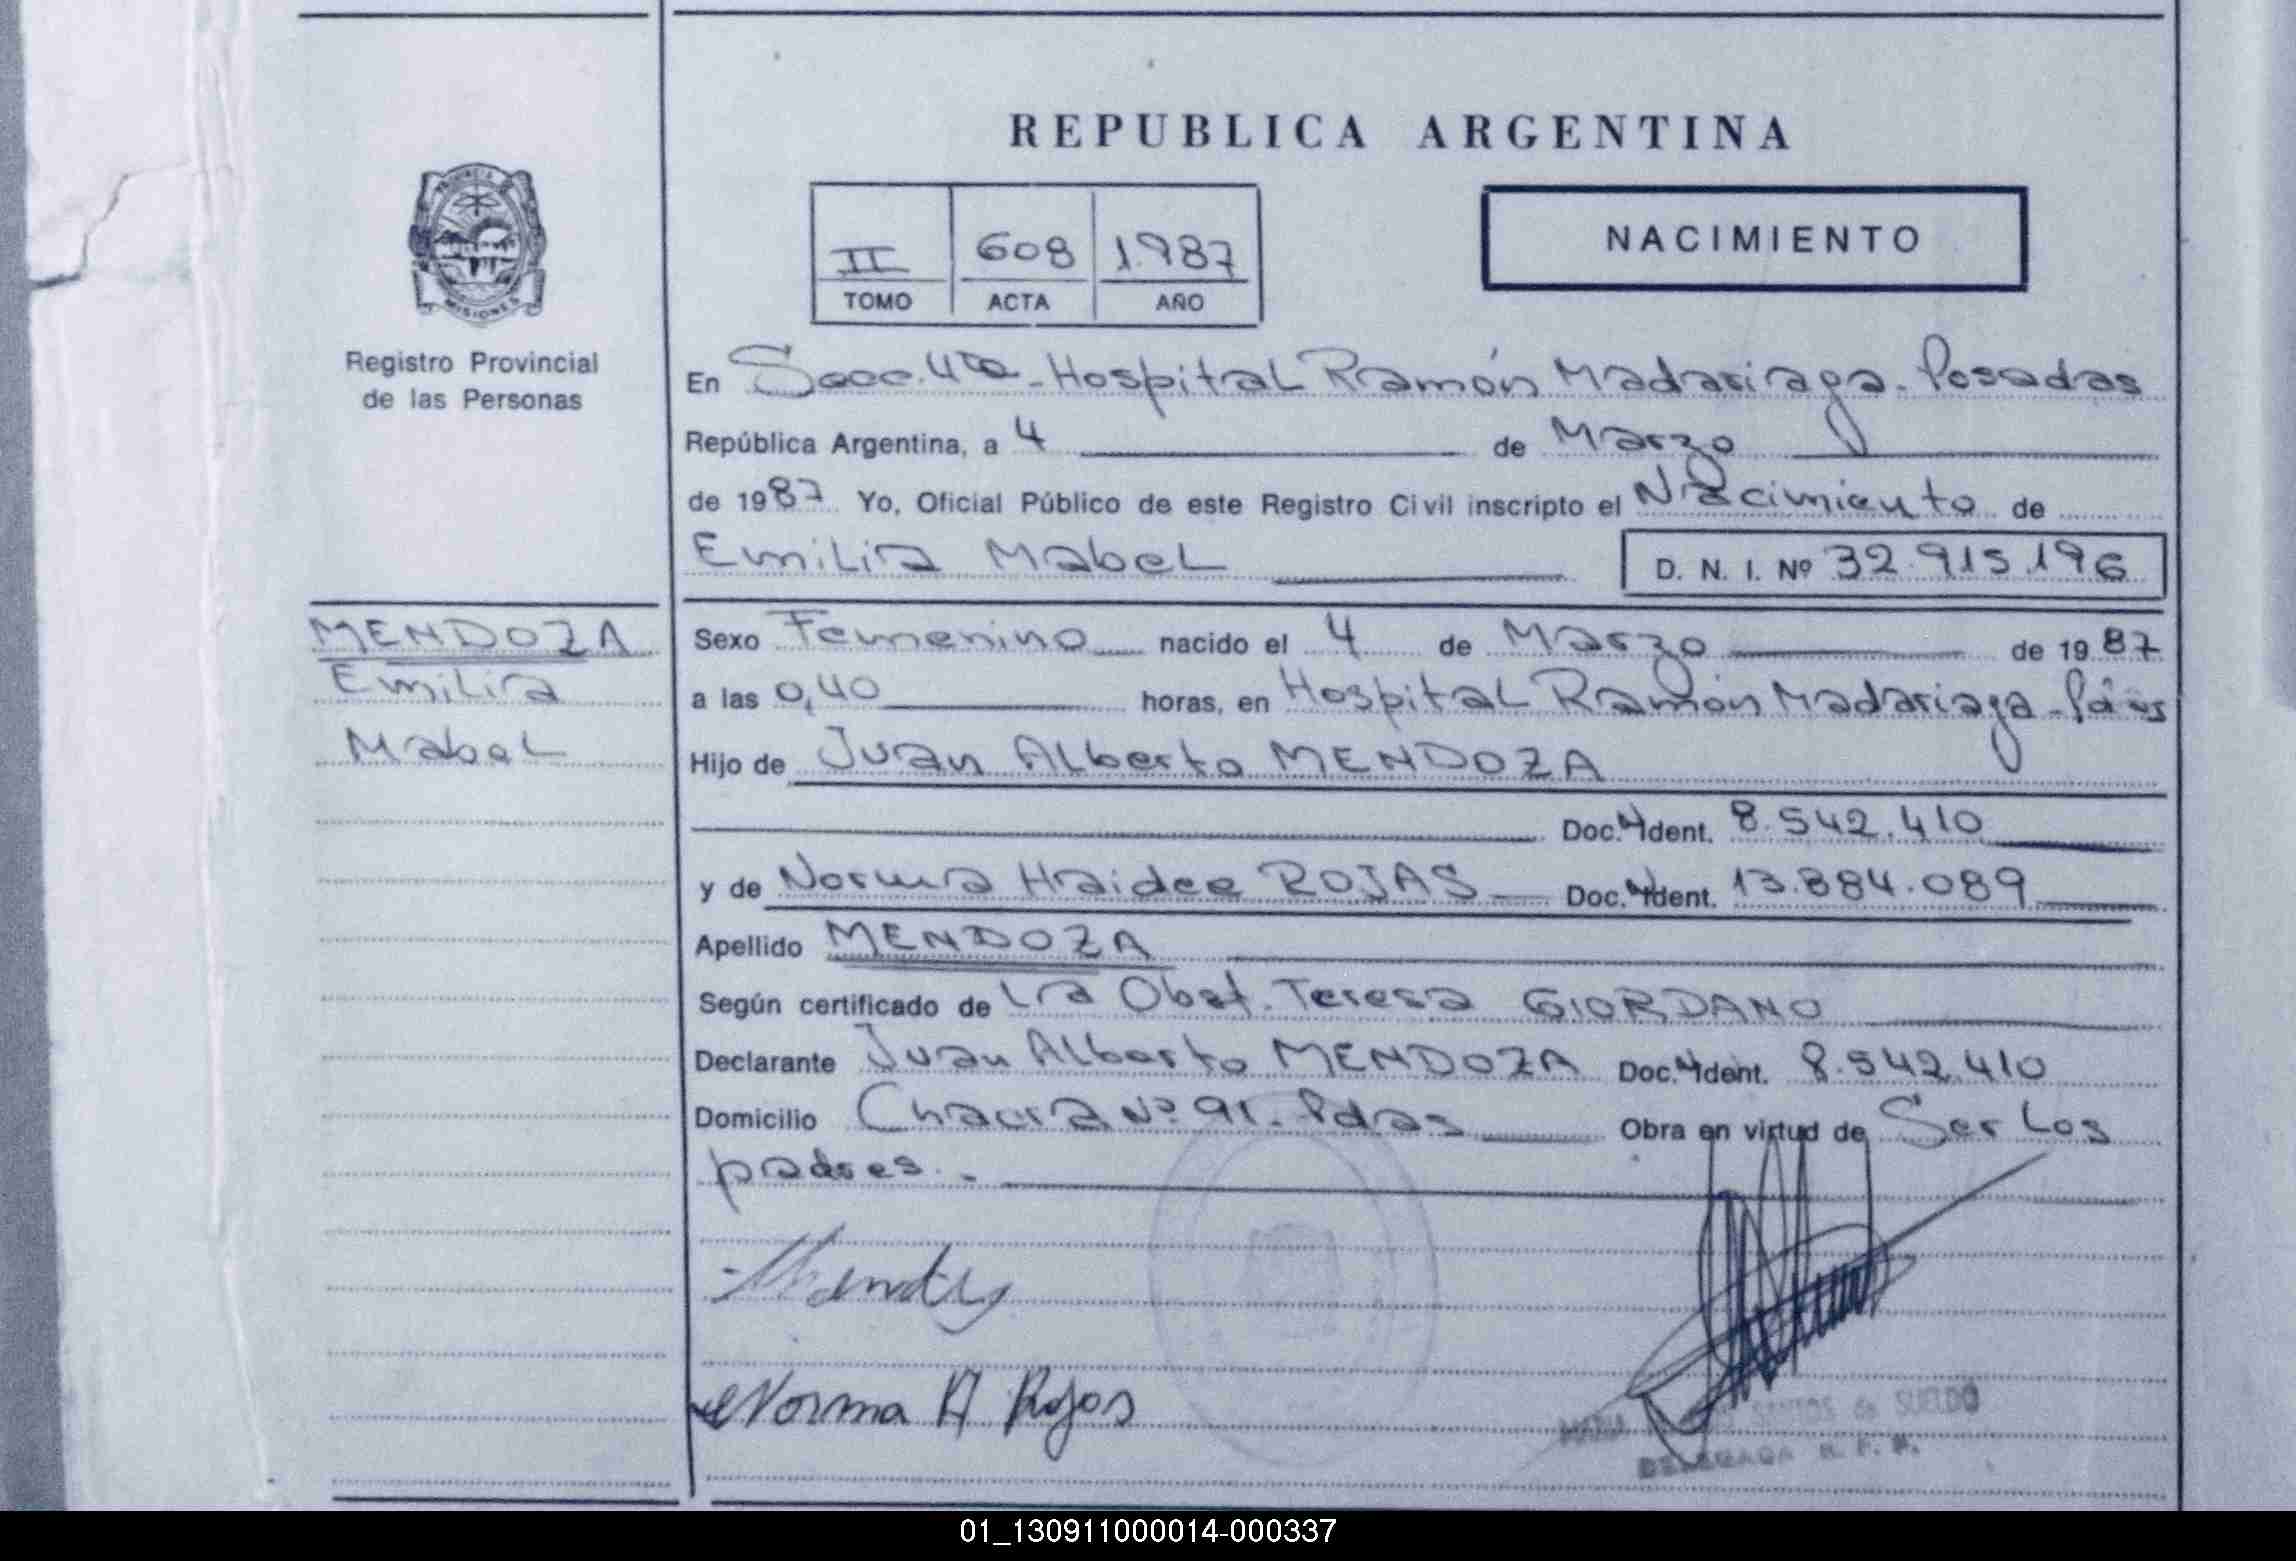 REPUBLICA ARGENTINA
PROVINCIA DE
MISIONES
Registro Provincial
de las Personas
II 608 1.987
TOMO ACTA AÑO
NACIMIENTO
En Secc. 4ta - Hospital Ramón Madariaga - Posadas
República Argentina, a 4 de Marzo
de 1987 Yo, Oficial Público de este Registro Civil inscripto el Nacimiento de
Emilia Mabel D. N. I. Nº 32.915.196
MENDOZA
Emilia
Mabel
Sexo Femenino nacido el 4 de Marzo de 1987
a las 0,40 horas, en Hospital Ramón Madariaga - Pdas
Hijo de Juan Alberto MENDOZA
Doc. Ident. 8.542.410
y de Norma Haidee ROJAS Doc. Ident. 13.884.089
Apellido MENDOZA
Según certificado de La Obst. Teresa GIORDANO
Declarante Juan Alberto MENDOZA Doc. Ident. 8.542.410
Domicilio Chacra Nº 91 - Pdas Obra en virtud de Ser Los
padres. -
Norma H Rojas
MARIA SANTOS de SUELDO
DELEGADA R. P. P.
01_130911000014-000337